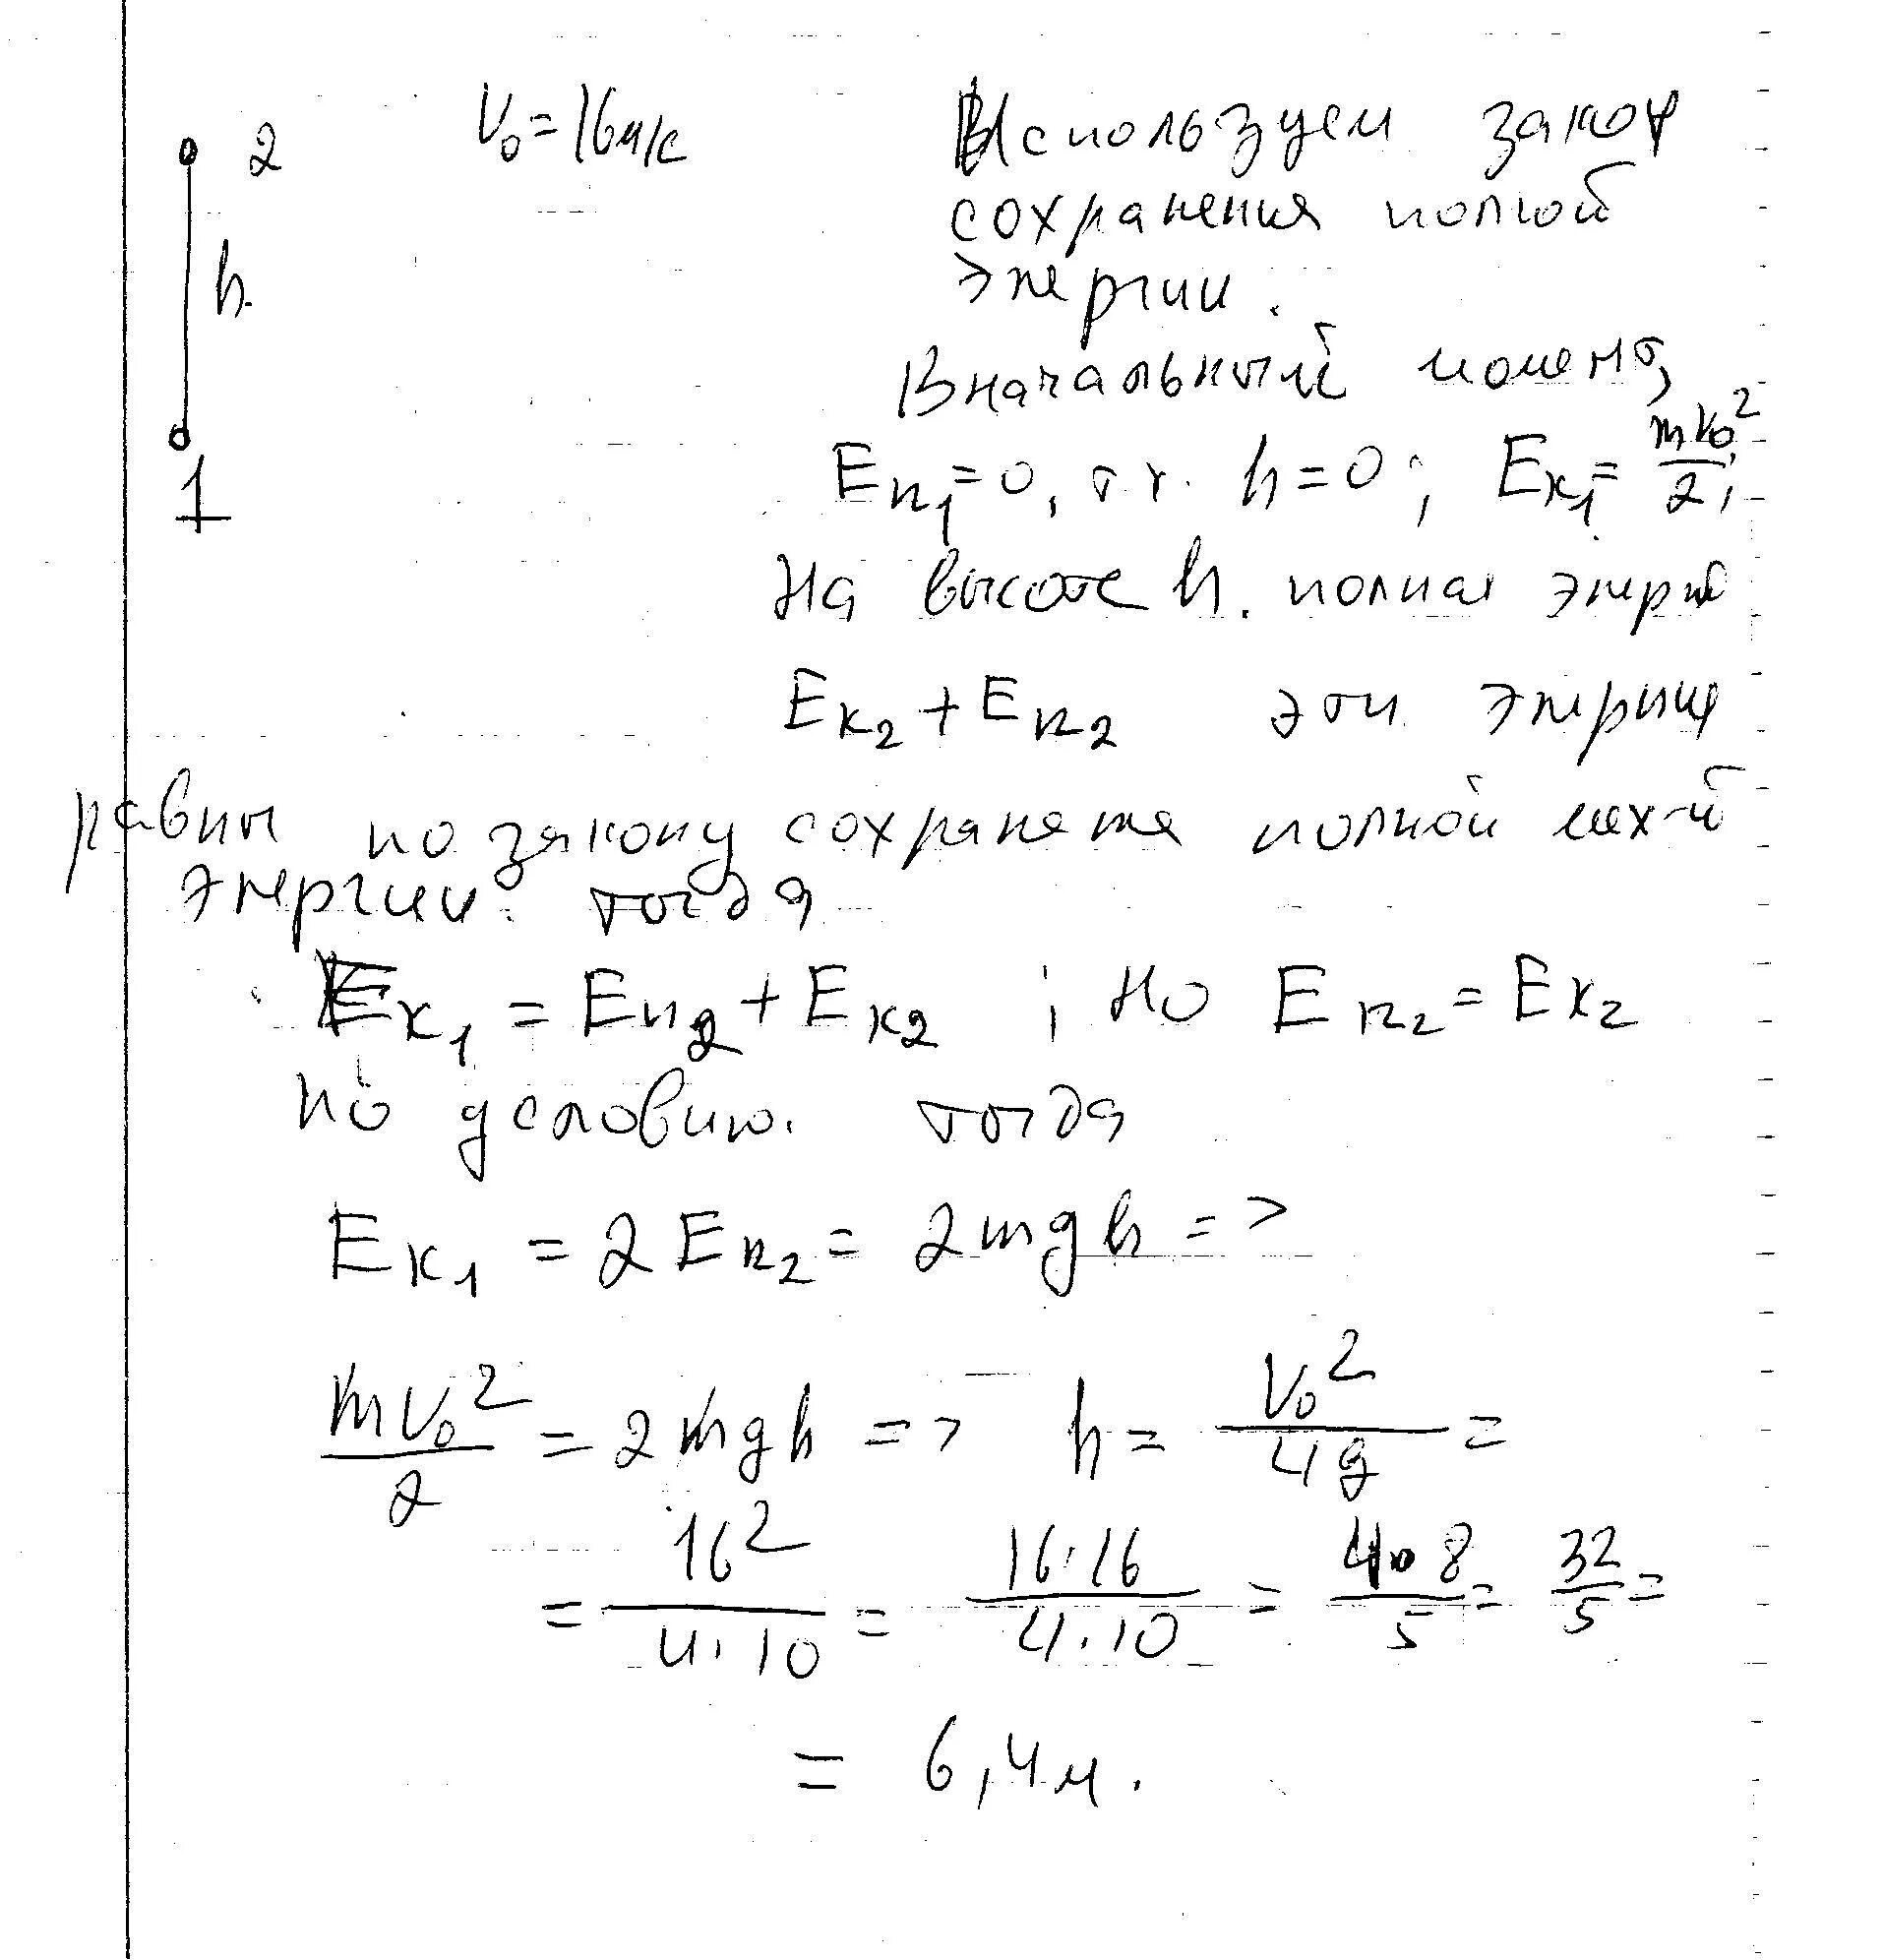 2
V₀ = 16 м/с
h.
1
Используем закон
сохранения полной
энергии.
В начальный момент,
Eп₁ = 0, т.к. h = 0; Eк₁ = mv₀²/2;
На высоте h. полная энергия
Eк₂ + Eп₂ эти энергии
равны по закону сохранения полной мех-й
энергии. тогда
Eк₁ = Eп₂ + Eк₂ ; но Eп₂ = Eк₂
по условию. тогда
Eк₁ = 2 Eп₂ = 2mgh =>
mv₀²/2 = 2mgh => h = V₀²/4g =
= 16²/4·10 = 16·16/4·10 = 4·8/5 = 32/5 =
= 6,4 м.